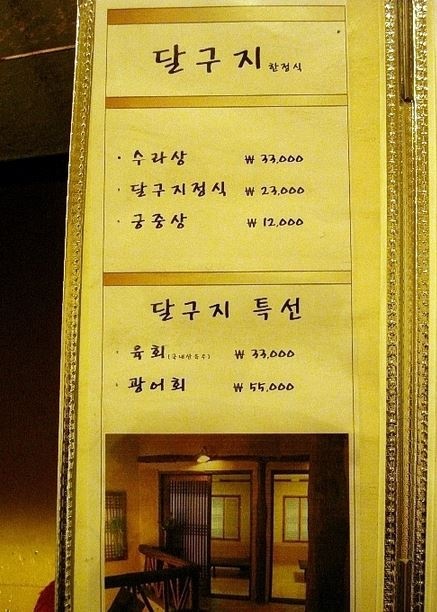 달구지 한정식
· 수라상 ₩ 33,000
· 달구지정식 ₩ 23,000
· 궁중상 ₩ 12,000
달구지 특선
· 육회 ₩ 33,000
· 광어회 ₩ 55,000